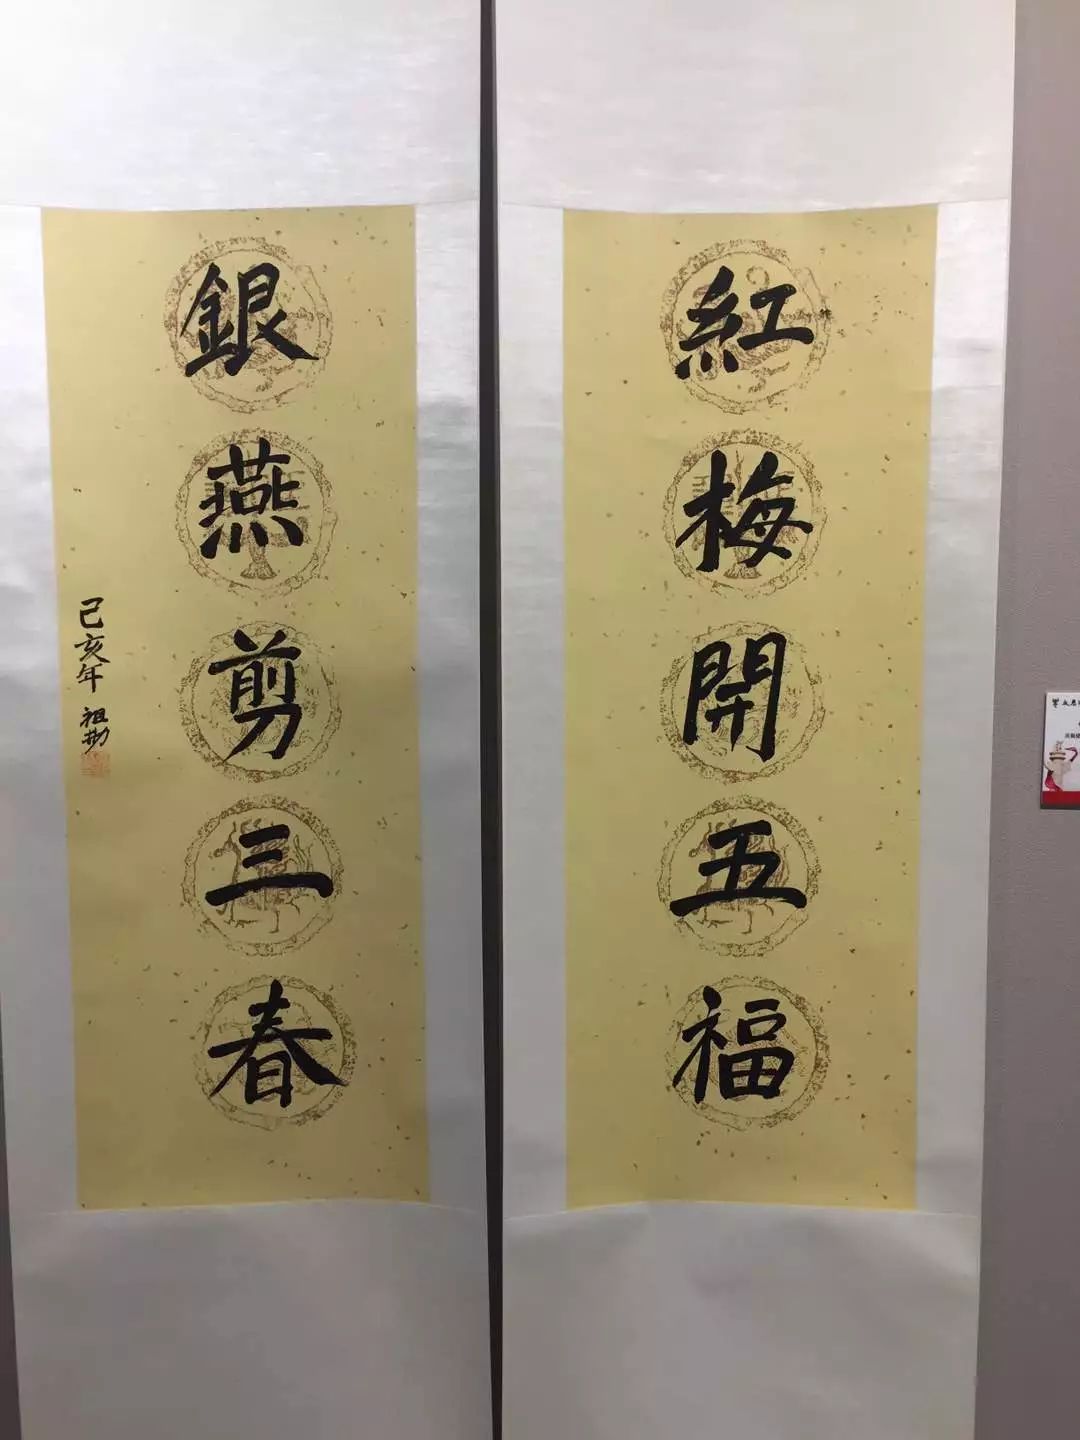 紅梅開五福
銀燕剪三春
己亥年 祖勛